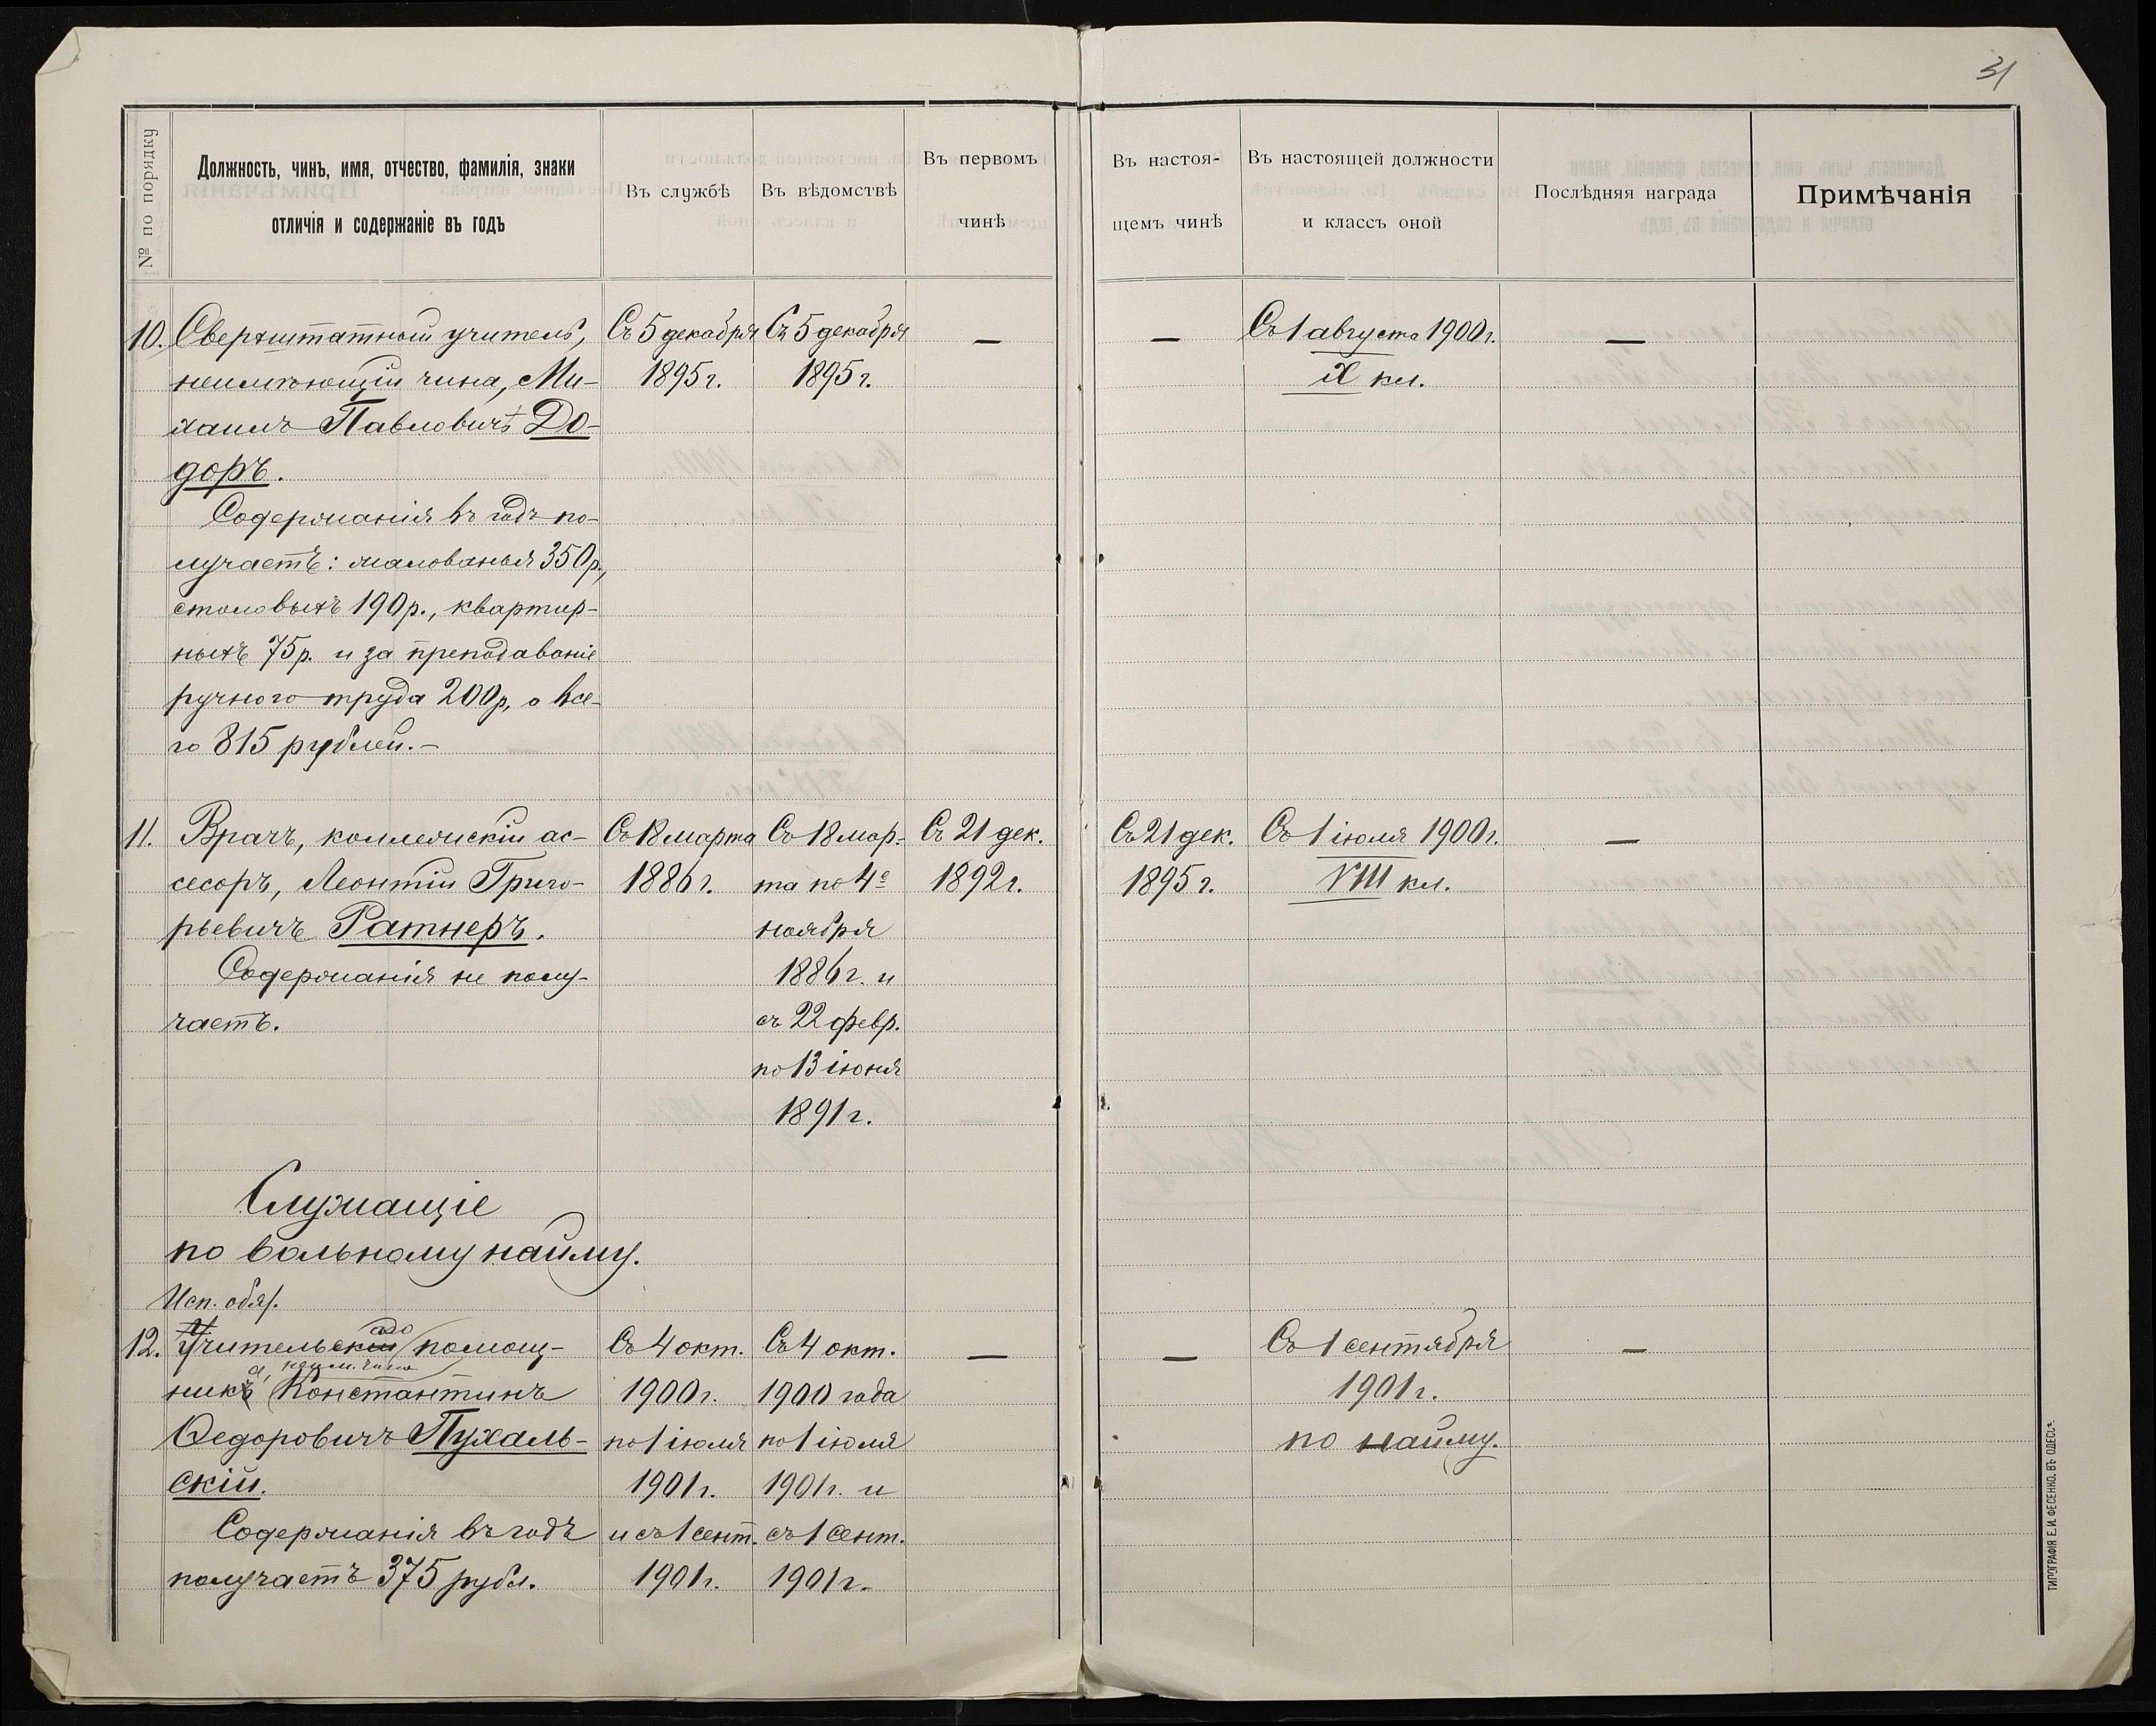 31
№ по порядку
Должность, чинъ, имя, отчество, фамилія, знаки
отличія и содержаніе въ годъ
Въ службѣ
Въ вѣдомствѣ
Въ первомъ
чинѣ
Въ настоя-
щемъ чинѣ
Въ настоящей должности
и классъ оной
Послѣдняя награда
Примѣчанія
10.
Сверхштатный учитель,
неимѣющій чина, Ми-
хаилъ Павловичъ До-
доръ.
Содержанія въ годъ по-
лучаетъ: жалованья 350р.,
столовыхъ 190р., квартир-
ныхъ 75р. и за преподаваніе
ручного труда 200р, а все-
го 815 рублей.-
Съ 5 декабря
1895г.
Съ 5 декабря
1895г.
—
—
Съ 1 августа 1900г.
IX кл.
—
11.
Врачъ, коллежскій ас-
сесоръ, Леонтій Григо-
рьевичъ Ратнеръ.
Содержанія не полу-
чаетъ.
Съ 18 марта
1886г.
Съ 18 мар-
та по 4е
ноября
1886г. и
съ 22 февр.
по 13 іюня
1891г.
Съ 21 дек.
1892г.
Съ 21 дек.
1895г.
Съ 1 іюля 1900г.
VIII кл.
—
Служащіе
по вольному найму.
Исп. обяз.
12.
Учительскій аго помощ-
никъ а, неим. чина Константинъ
Ѳедоровичъ Пухаль-
скій.
Содержанія въ годъ
получаетъ 375 рубл.
Съ 4 окт.
1900г.
по 1 іюля
1901г.
и съ 1 сент.
1901г.
Съ 4 окт.
1900 года
по 1 іюля
1901г. и
съ 1 сент.
1901г.
—
—
Съ 1 сентября
1901г.
по найму.
—
ТИПОГРАФІЯ Е. И. ФЕСЕНКО, ВЪ ОДЕССѢ.